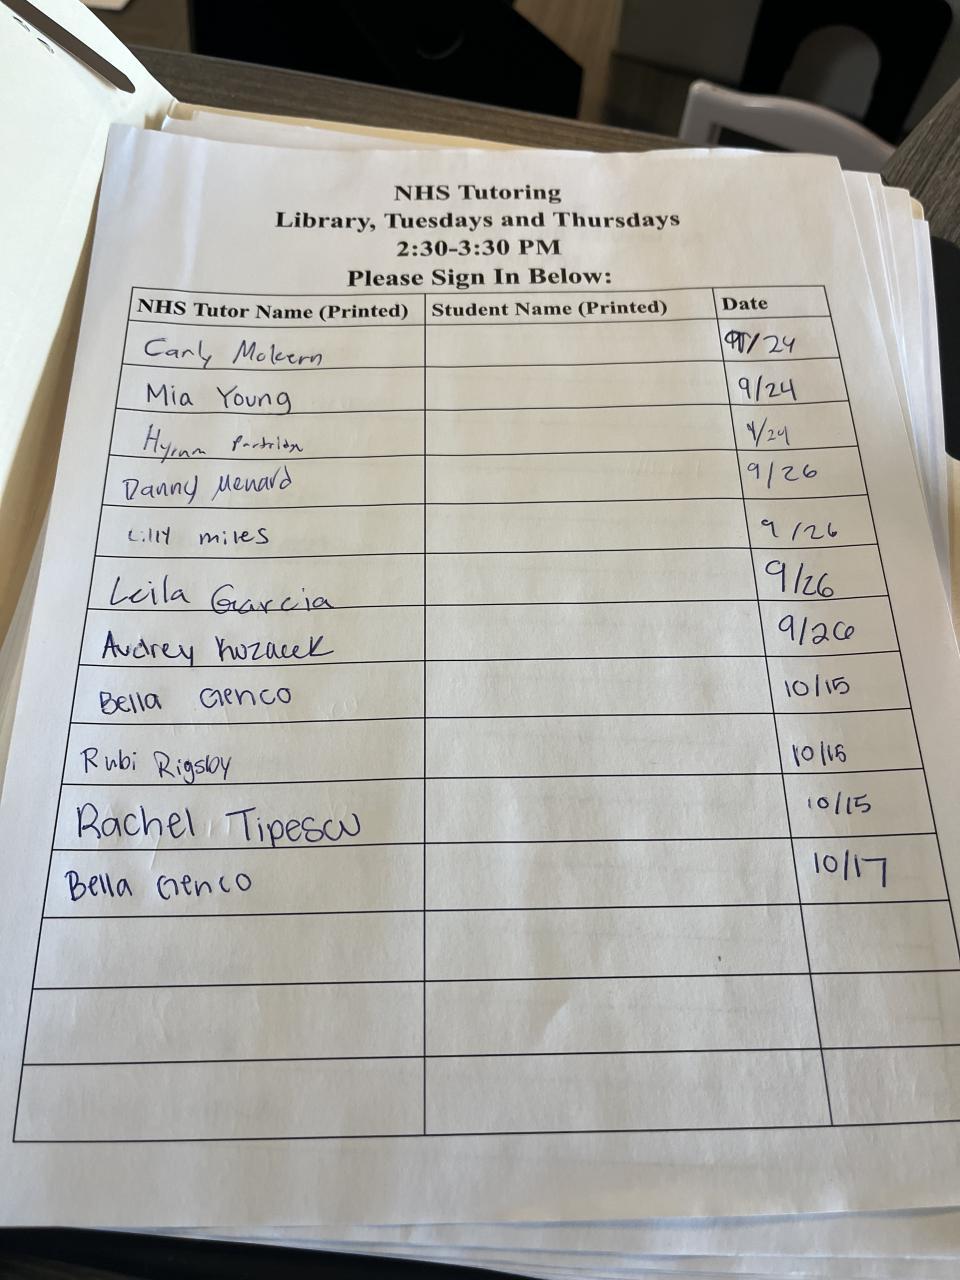 NHS Tutoring
Library, Tuesdays and Thursdays
2:30-3:30 PM
Please Sign In Below:
NHS Tutor Name (Printed) Student Name (Printed) Date
Carly 9/24
Mia Young 9/24
Hyrum 9/24
Danny Menard 9/26
Lilly miles 9/26
Leila Garcia 9/26
Audrey Kozacek 9/26
Bella Genco 10/15
Rubi Rigsby 10/15
Rachel Tipescu 10/15
Bella Genco 10/17